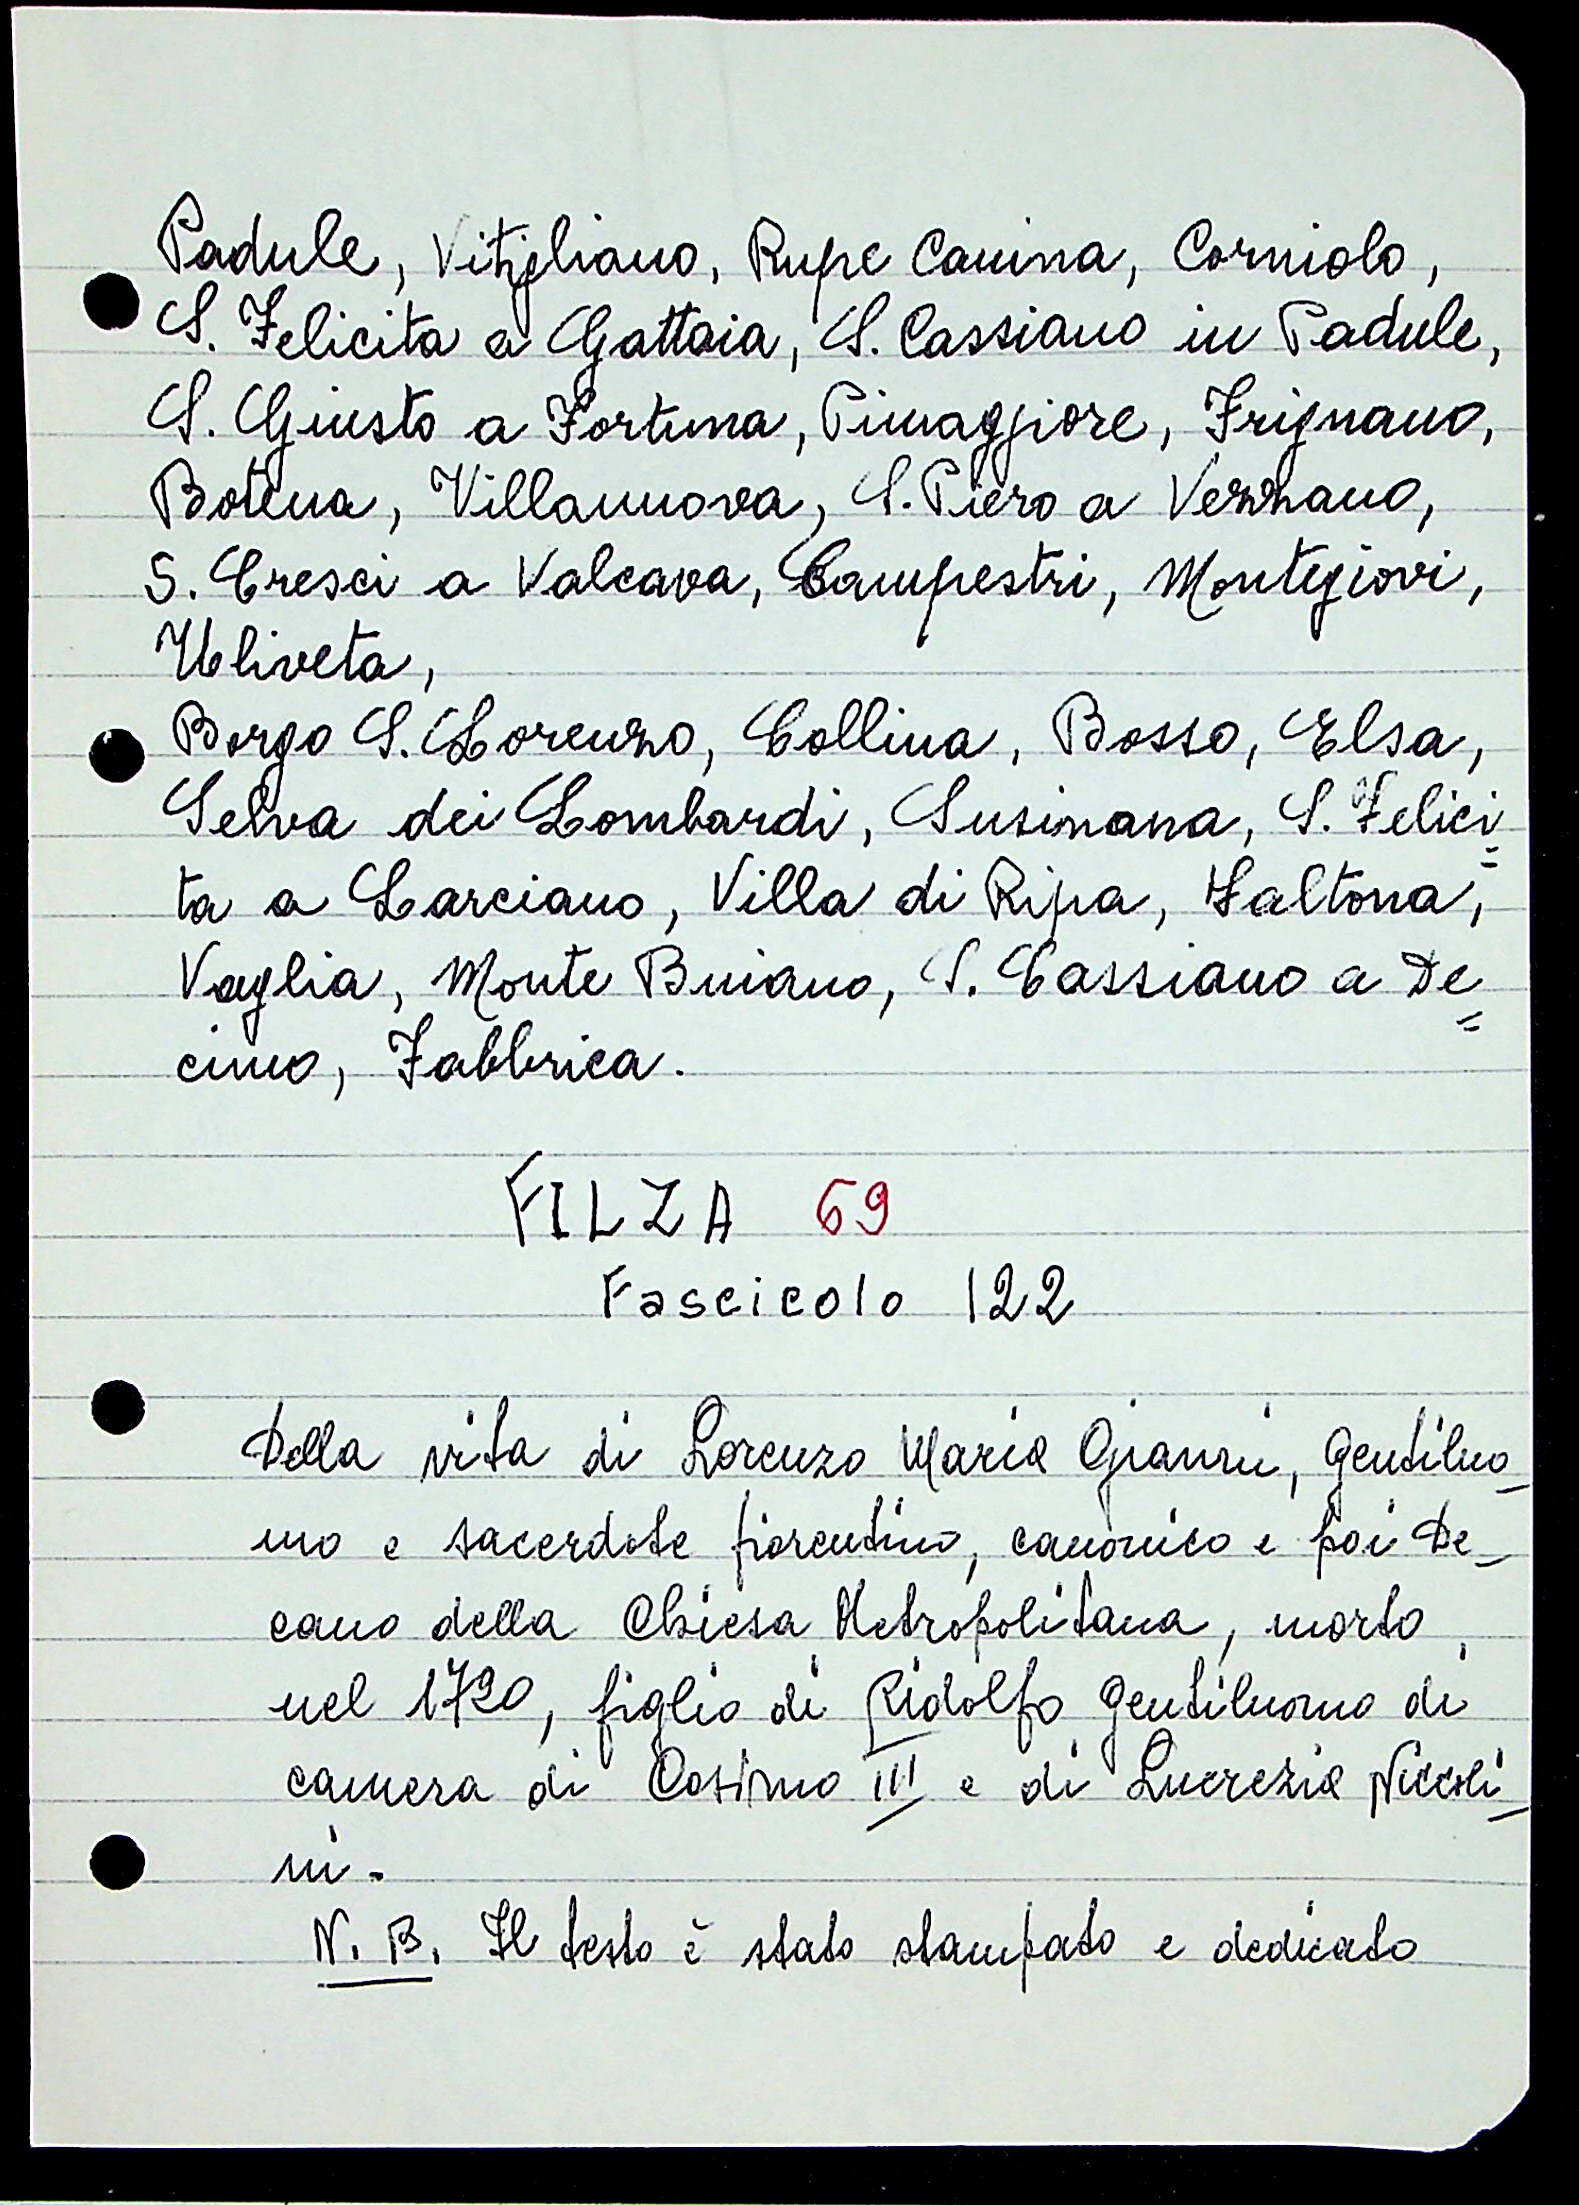 Padule, Vitigliano, Rupe Canina, Corniolo,
S. Felicita a Gattaia, S. Cassiano in Padule,
S. Giusto a Fortuna, Pimaggiore, Frignano,
Botena, Villannova, S. Piero a Vezzano,
S. Cresci a Valcava, Campestri, Montegiovi,
Uliveta,
Borgo S. Lorenzo, Collina, Bosso, Elsa,
Selva dei Lombardi, Susinana, S. Felici=
ta a Larciano, Villa di Ripa, Faltona,
Vaglia, Monte Buiano, S. Cassiano a De=
cimo, Fabbrica.
FILZA 69
Fascicolo 122
Della vita di Lorenzo Maria Gianni, Gentiluo-
mo e sacerdote fiorentino, canonico e poi De-
cano della Chiesa Metropolitana, morto
nel 1720, figlio di Ridolfo Gentiluomo di
camera di Cosimo III e di Lucrezia Niccoli-
ni.
N. B. Il testo è stato stampato e dedicato